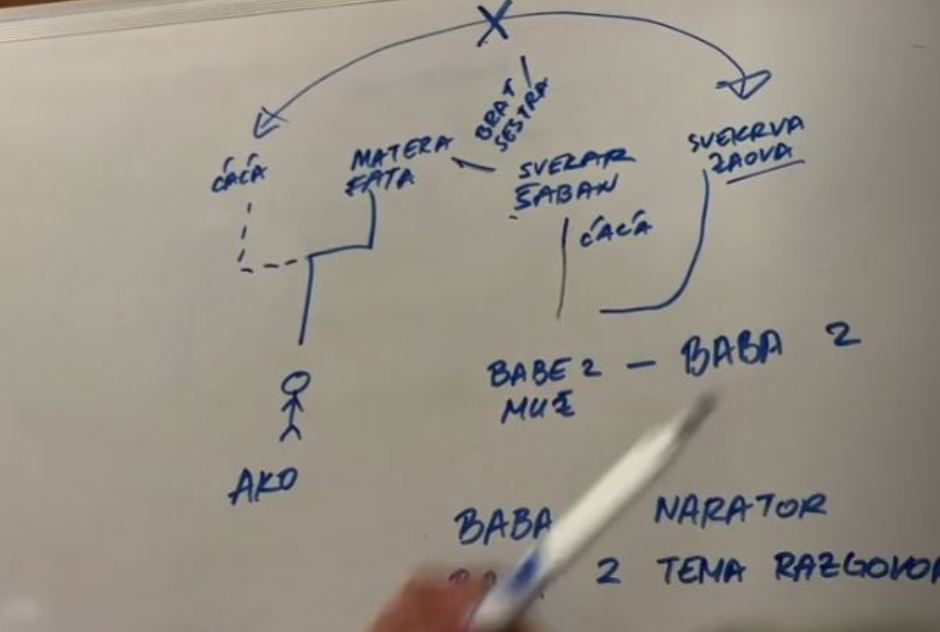 X
BRAT
SESTRA
ĆAĆA
MATERA
FATA
SVEKAR
ŠABAN
SVEKRVA
ZAOVA
ĆAĆA
BABE 2 - BABA 2
MUŽ
AKO
BABA NARATOR
2 TEMA RAZGOVOR